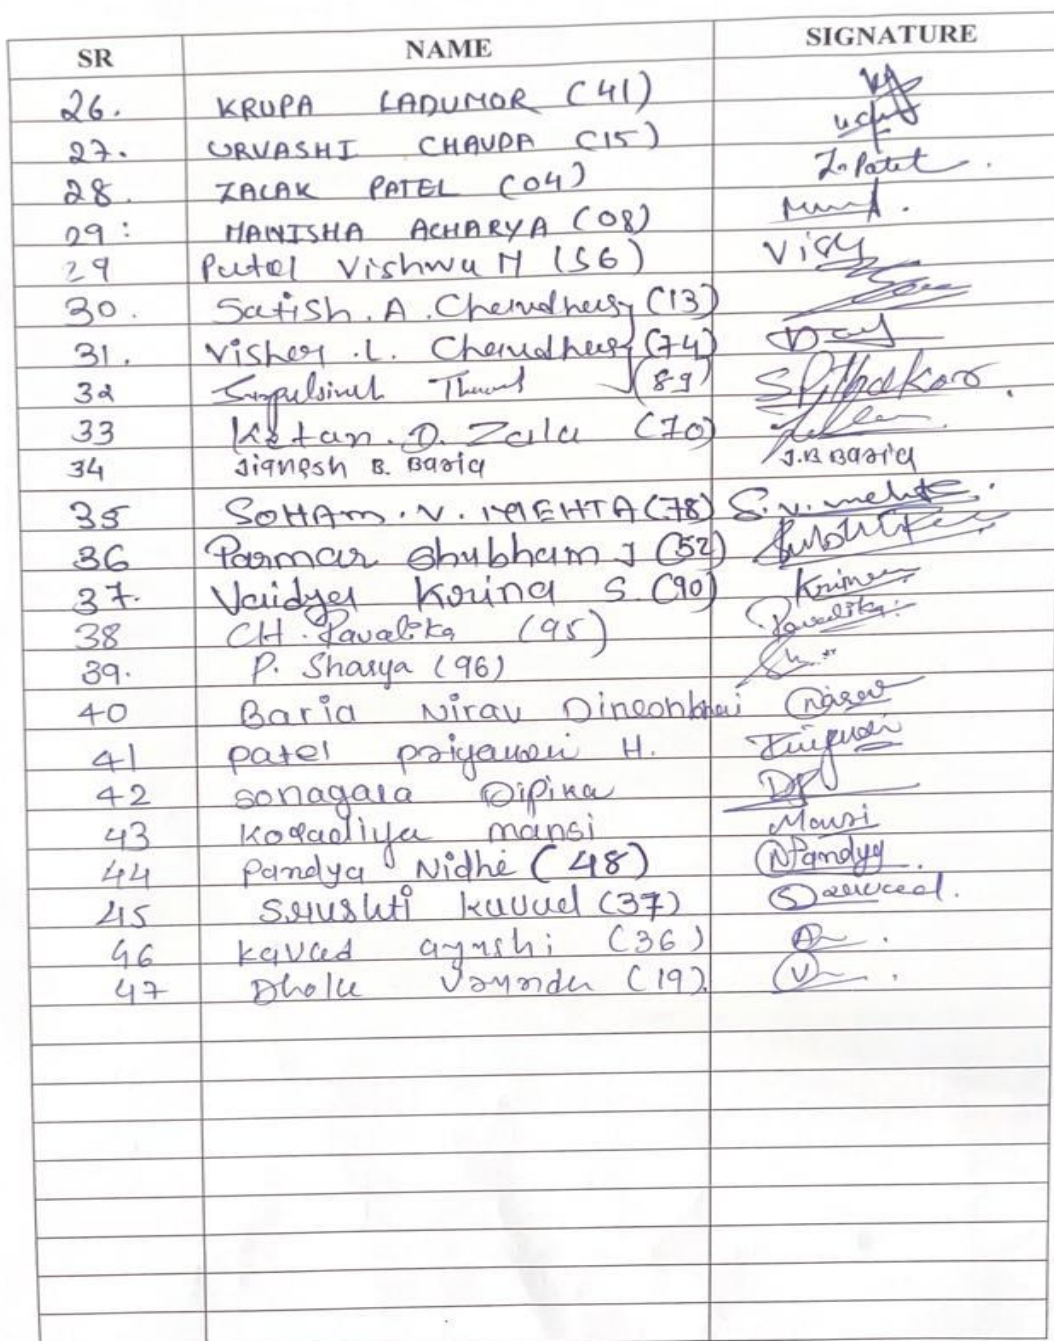 SR NAME SIGNATURE
26. KRUPA LADUMOR (41)
27. URVASHI CHAVDA (15)
28. ZALAK PATEL (04) Z. Patel.
29: MANISHA ACHARYA (08)
29 Patel Vishwa M (56) Vishy
30. Satish. A. Chaudhary (13)
31. Vishal .L. Chaudhary (74)
32 (89) S P Thakor.
33 Ketan. D. Zala (70)
34 Jignesh B. Baria J.B Baria
35 SOHAM. V. MEHTA (78) S.v. mehta.
36 Parmar Shubham J (52)
37. Vaidya Krina S. (90) Krina
38 CH. Pavalika (95) Pavalika
39. P. Sharya (96)
40 Baria Nirav Dineshbhai Nirav
41 patel priyanshi H.
42 sonagara Dipika
43 Koradiya mansi Mansi
44 Pandya Nidhi (48) N Pandya.
45 Srushti kavad (37)
46 kavad ayushi (36)
47 (19).